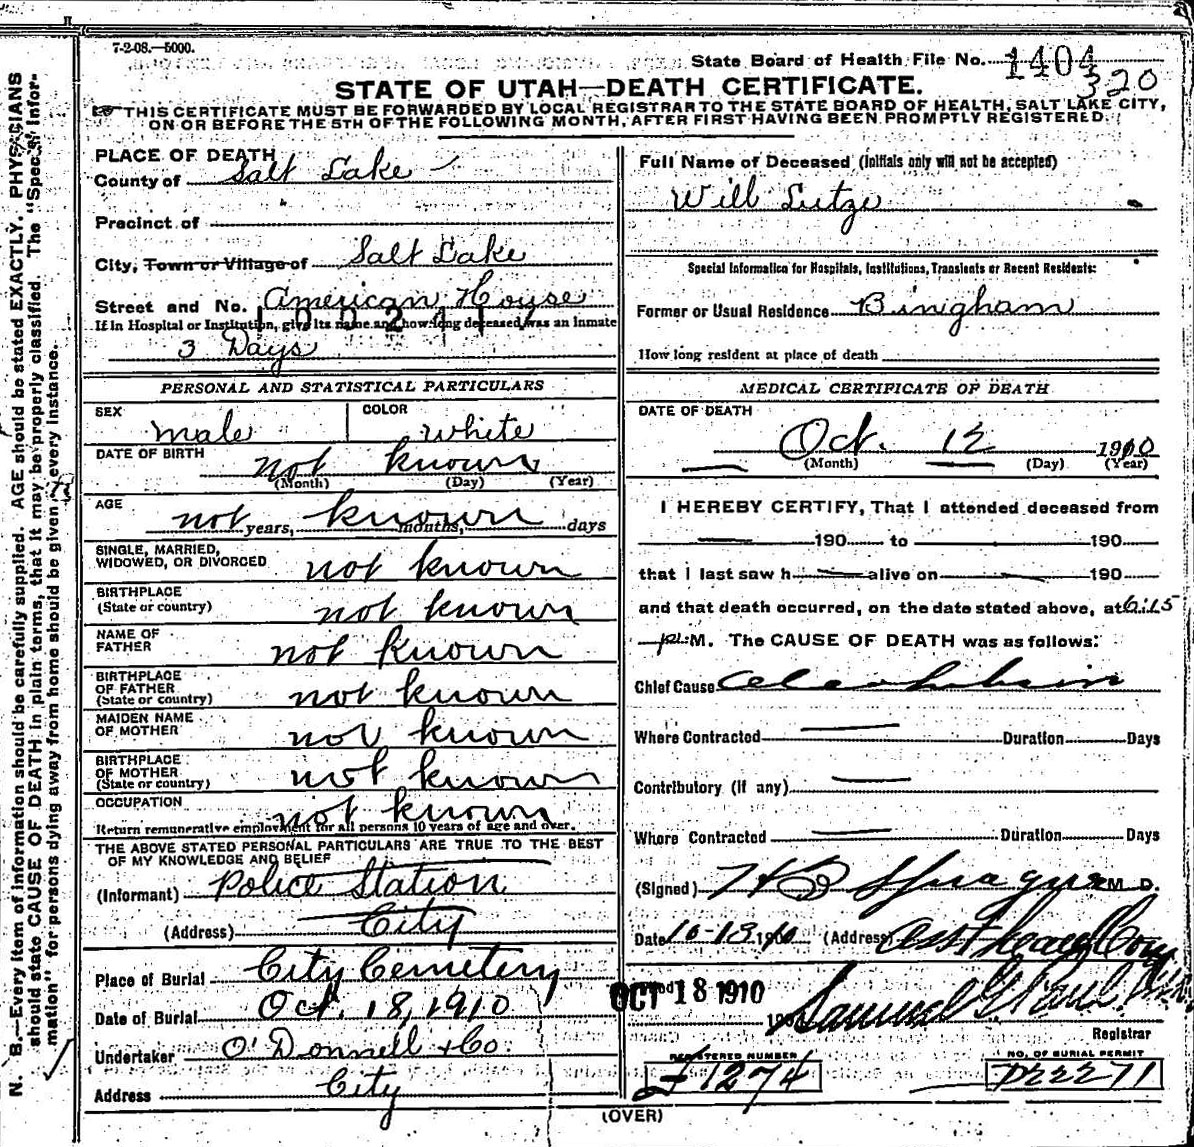 7-2-08.—5000.
State Board of Health File No. 1404
320
STATE OF UTAH—DEATH CERTIFICATE.
THIS CERTIFICATE MUST BE FORWARDED BY LOCAL REGISTRAR TO THE STATE BOARD OF HEALTH, SALT LAKE CITY,
ON OR BEFORE THE 5TH OF THE FOLLOWING MONTH, AFTER FIRST HAVING BEEN PROMPTLY REGISTERED.
N. B.—Every item of information should be carefully supplied. AGE should be stated EXACTLY. PHYSICIANS
should state CAUSE OF DEATH in plain terms, that it may be properly classified. The "Special Infor-
mation" for persons dying away from home should be given in every instance.
PLACE OF DEATH
County of Salt Lake
Precinct of
City, Town or Village of Salt Lake
Street and No. American House
If in Hospital or Institution, give its name and how long deceased was an inmate
3 Days
PERSONAL AND STATISTICAL PARTICULARS
SEX male COLOR white
DATE OF BIRTH not known
(Month) (Day) (Year)
AGE not years, known months, days
SINGLE, MARRIED,
WIDOWED, OR DIVORCED not known
BIRTHPLACE
(State or country) not known
NAME OF
FATHER not known
BIRTHPLACE
OF FATHER
(State or country) not known
MAIDEN NAME
OF MOTHER not known
BIRTHPLACE
OF MOTHER
(State or country) not known
OCCUPATION not known
Return remunerative employment for all persons 10 years of age and over.
THE ABOVE STATED PERSONAL PARTICULARS ARE TRUE TO THE BEST
OF MY KNOWLEDGE AND BELIEF
(Informant) Police Station
(Address) City
Place of Burial City Cemetery
Date of Burial Oct. 18, 1910
Undertaker O'Donnell & Co
Address City
Full Name of Deceased (Initials only will not be accepted)
Will Lutze
Special Information for Hospitals, Institutions, Transients or Recent Residents:
Former or Usual Residence Bingham
How long resident at place of death
MEDICAL CERTIFICATE OF DEATH
DATE OF DEATH
Oct. 12 1910
(Month) (Day) (Year)
I HEREBY CERTIFY, That I attended deceased from
190 to 190
that I last saw h alive on 190
and that death occurred, on the date stated above, at 6:15
P.M. The CAUSE OF DEATH was as follows:
Chief Cause
Where Contracted Duration Days
Contributory (if any)
Where Contracted Duration Days
(Signed) H B Sprague M. D.
Date 10-13 1910 (Address)
OCT 18 1910
Samuel G. Paul
Registrar
REGISTERED NUMBER
1274
NO. OF BURIAL PERMIT
D22271
(OVER)